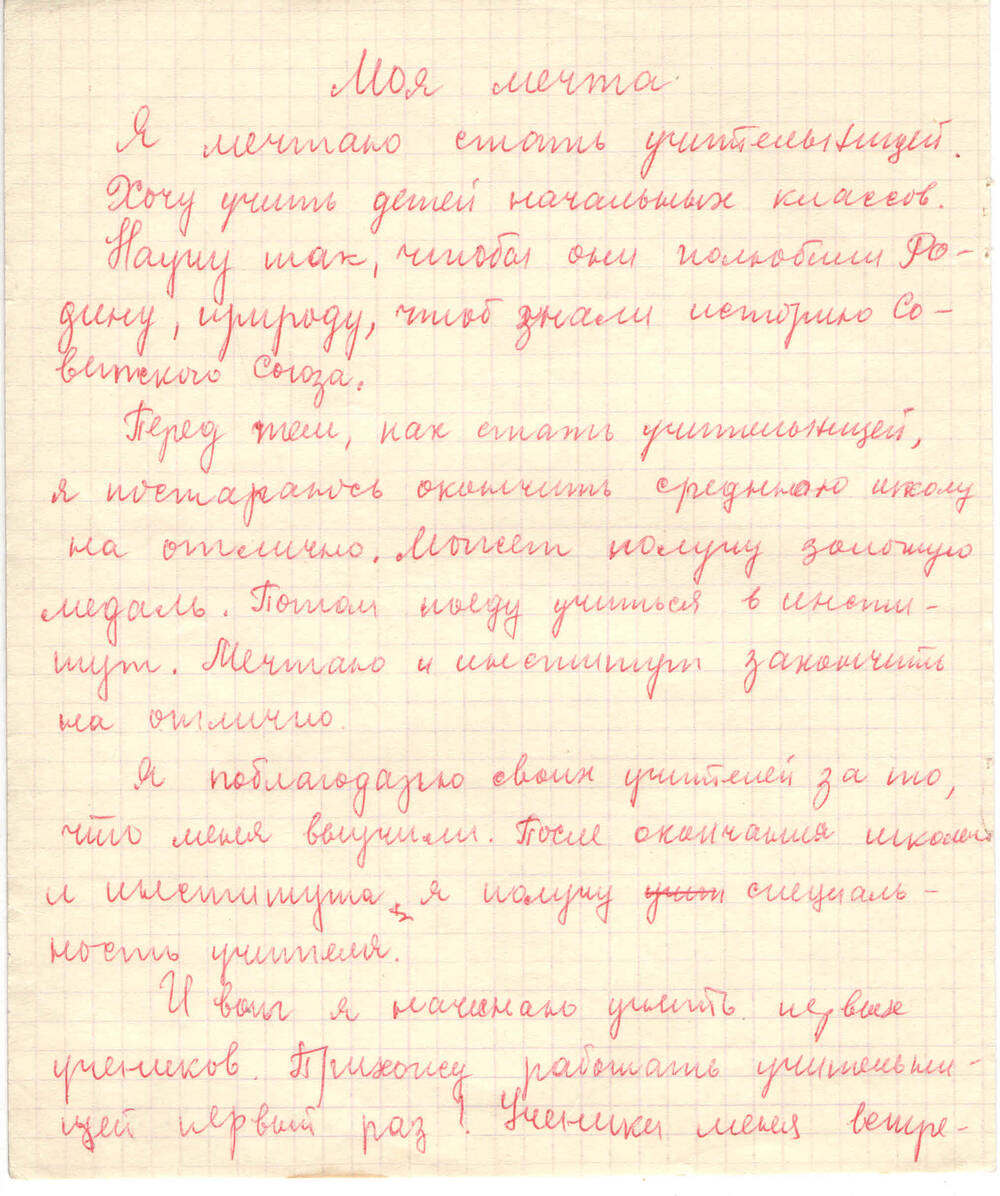 Моя мечта
Я мечтаю стать учительницей.
Хочу учить детей начальных классов.
Научу так, чтобы они полюбили Ро-
дину, природу, чтоб знали историю Со-
ветского Союза.
Перед тем, как стать учительницей,
я постараюсь окончить среднюю школу
на отлично. Может получу золотую
медаль. Потом поеду учиться в инсти-
тут. Мечтаю и институт закончить
на отлично.
Я поблагодарю своих учителей за то,
что меня выучили. После окончания школы
и института, я получу учит специаль-
ность учителя.
И вот я начинаю учить первых
учеников. Прихожу работать учительни-
цей первый раз! Ученики меня встре-